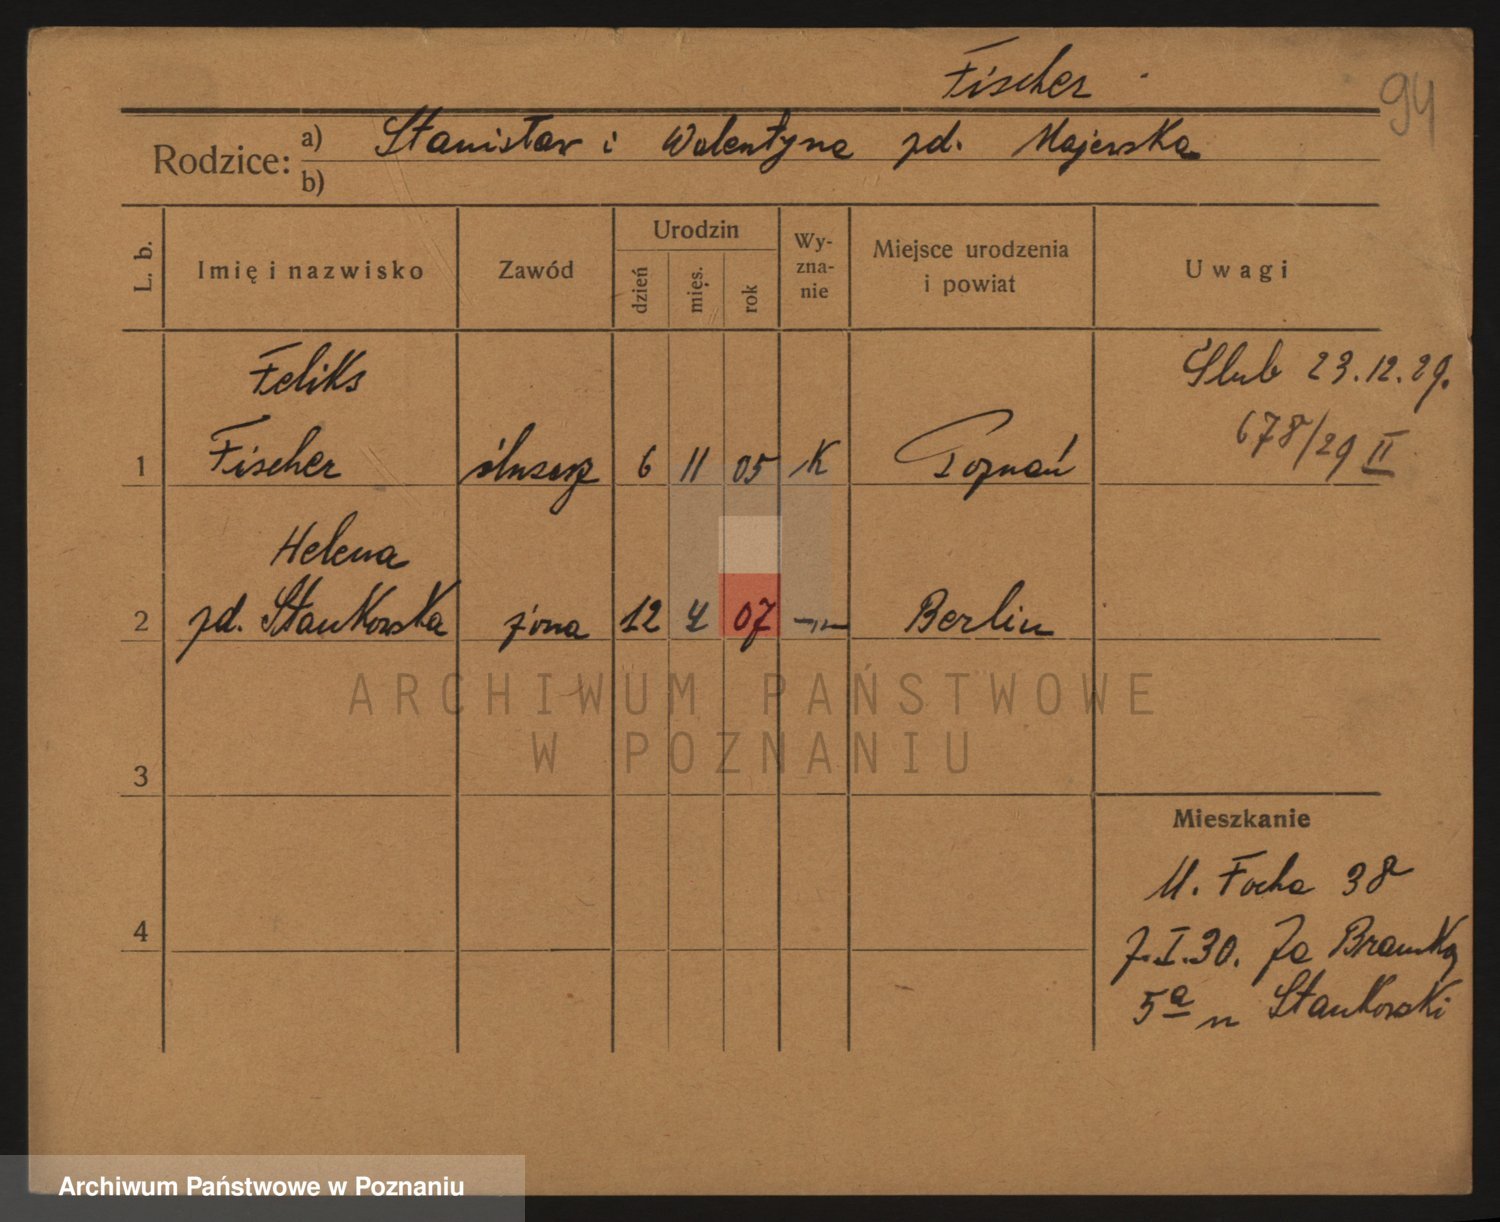 Fischer
94
Rodzice:
a) Stanisław i Walentyna zd. Majewska
b)
L. b.
Imię i nazwisko
Zawód
Urodzin
dzień
mięs.
rok
Wy-
zna-
nie
Miejsce urodzenia
i powiat
Uwagi
Feliks
Ślub 23.12.29.
678/29 II
1 Fischer ślusarz 6 11 05 K Poznań
Helena
2 zd. Stankowska żona 12 4 07 -"- Berlin
ARCHIWUM PAŃSTWOWE
W POZNANIU
3
Mieszkanie
M. Focha 38
4
7.I.30. Za Bramką
5a u Stankowski
Archiwum Państwowe w Poznaniu